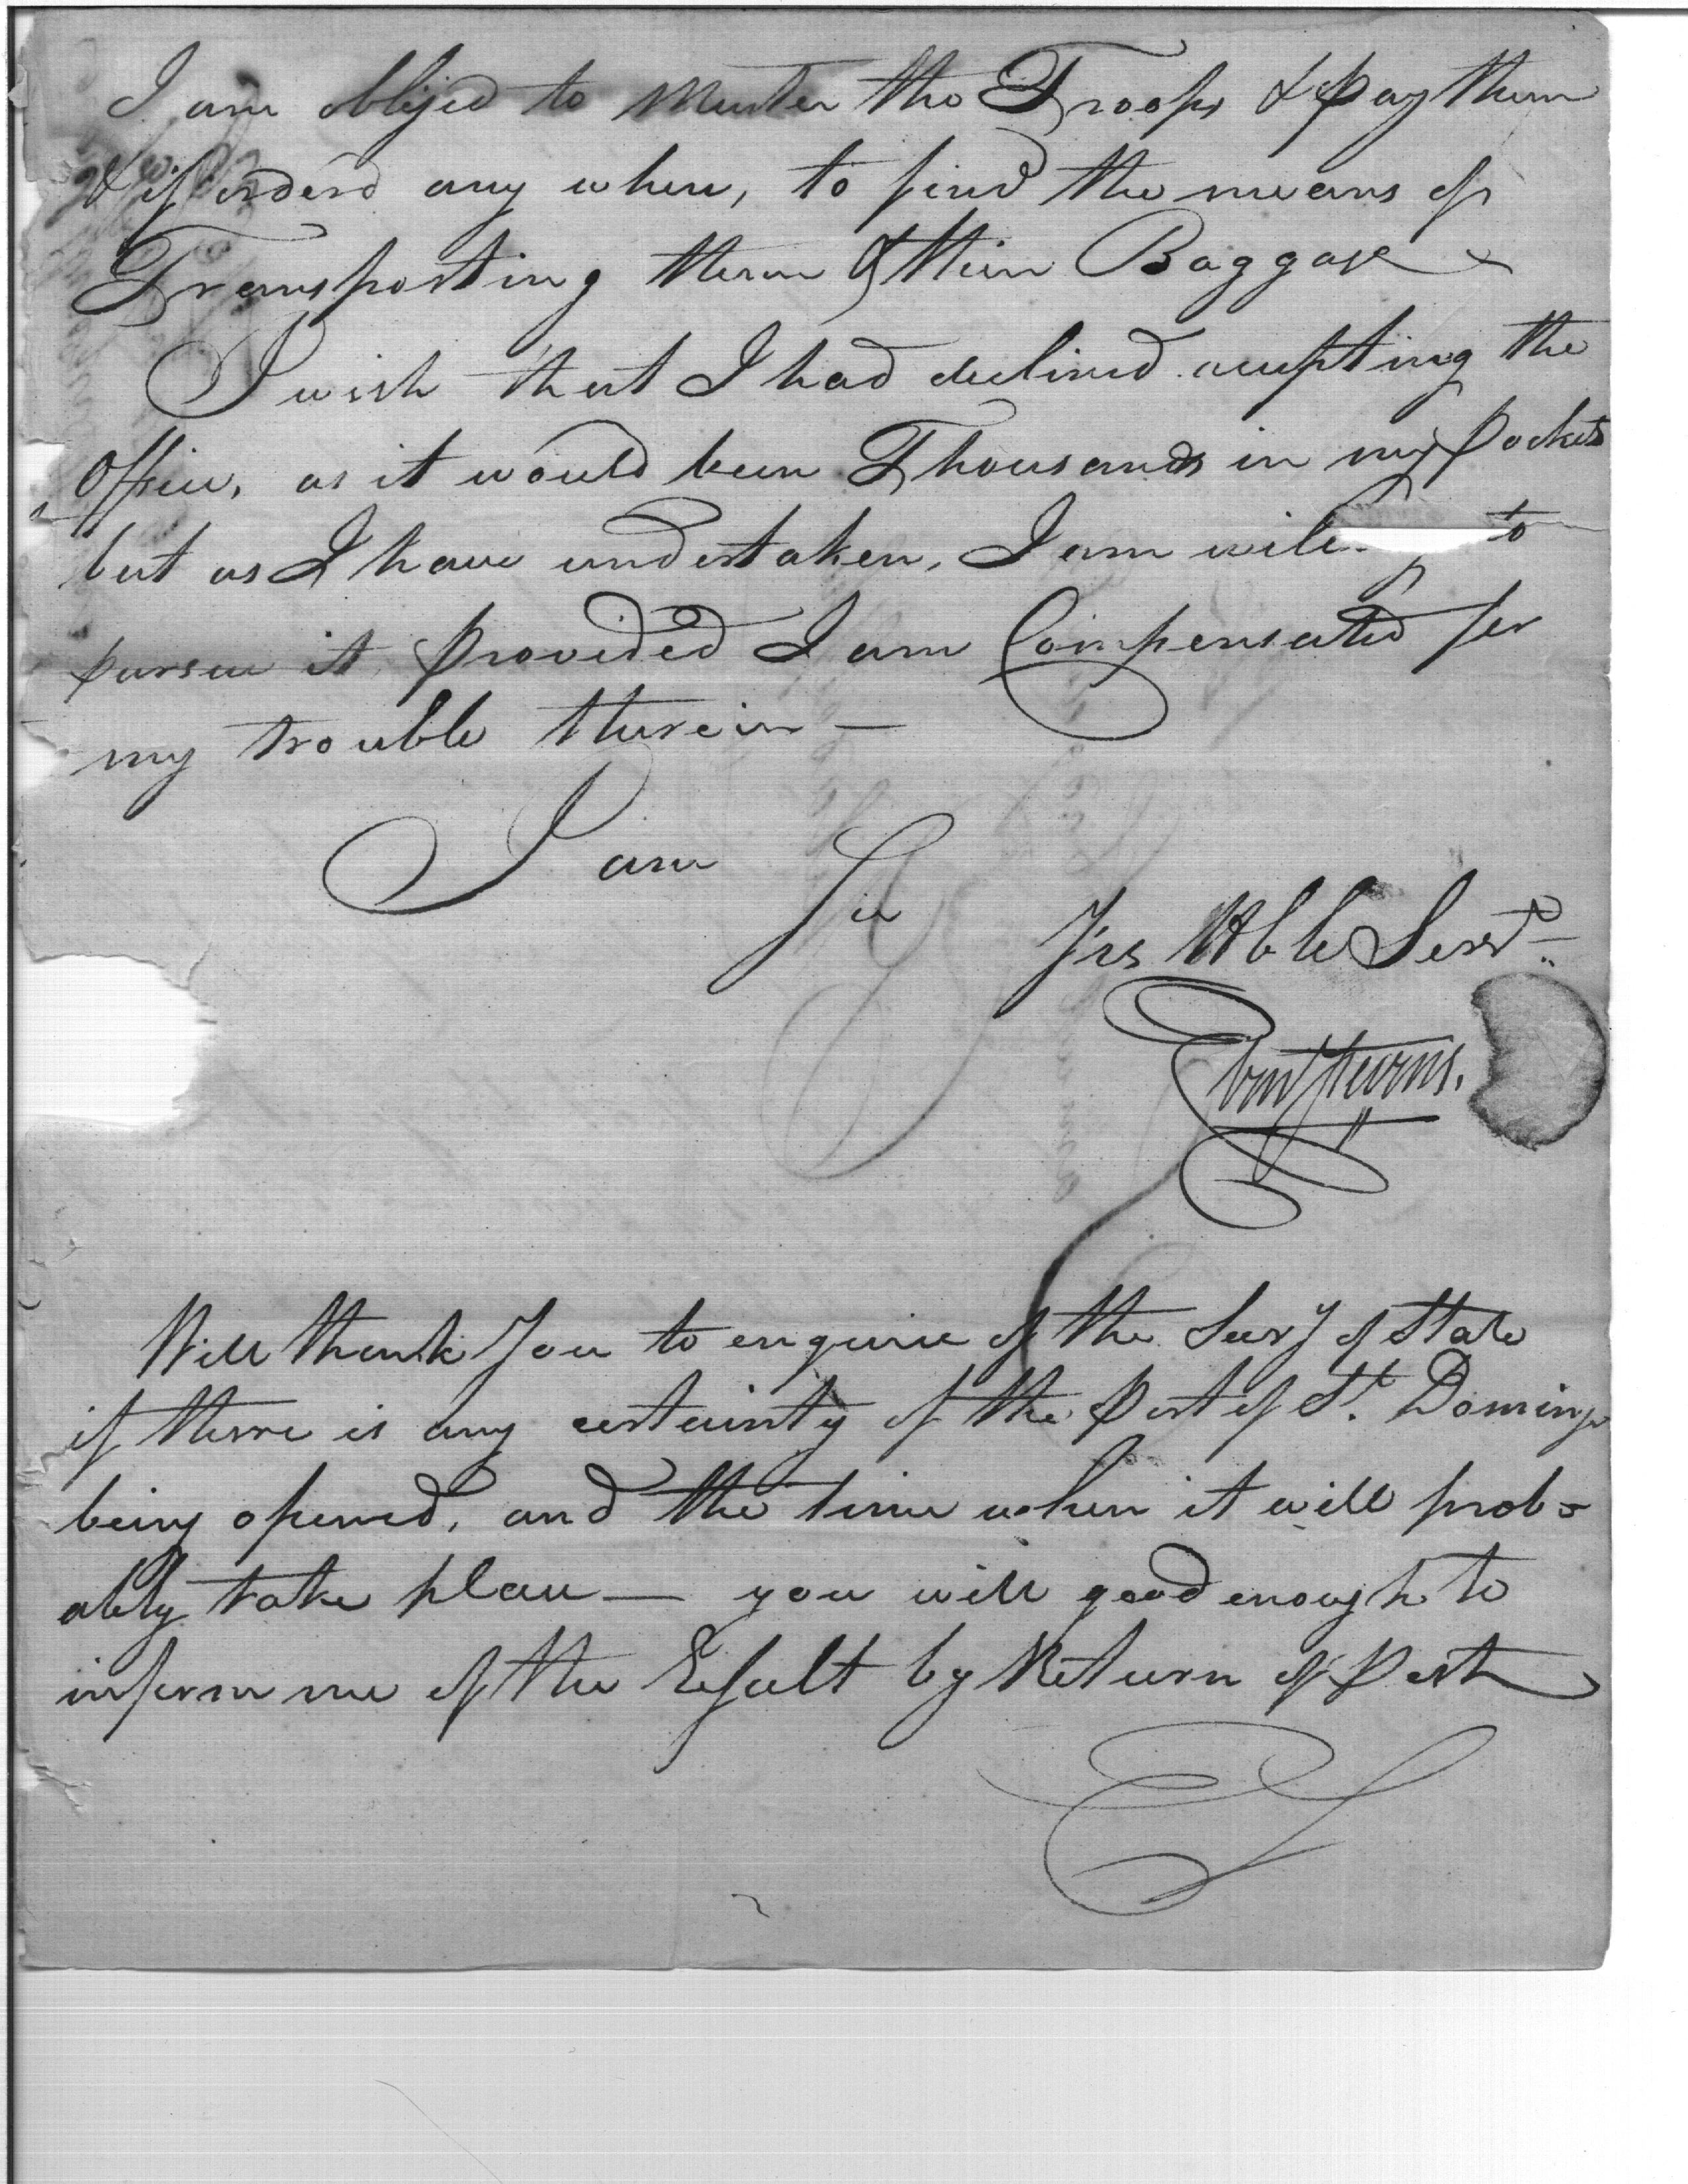 I am obliged to Muster the Troops & Pay them
& if orderd any where, to find the means of
Transporting them & their Baggage
I wish that I had declined accepting the
Office, as it would been Thousands in my Pockets
but as I have undertaken, I am willing to
pursue it provided I am Compensated for
my trouble therein —
I am
Sir
Yrs Hble Servt
Ebnr Stevens.
Will thank You to enquire of the Secry of State
if there is any certainty of the Port of St. Domingo
being opened, and the time when it will prob-
ably take place — you will good enough to
inform me of the Result by Return of Post
ES